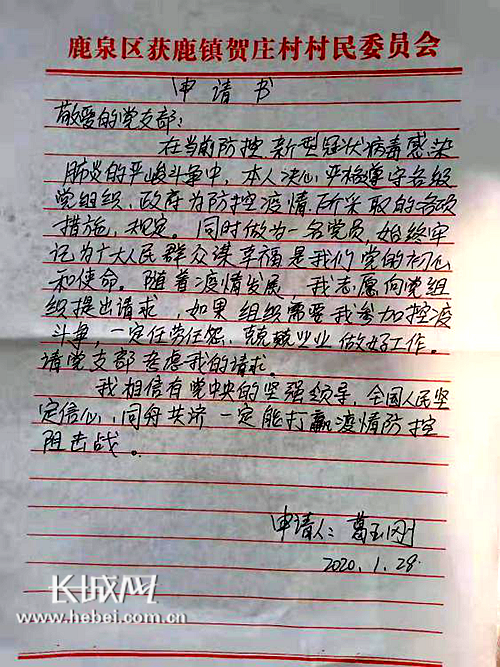 鹿泉区获鹿镇贺庄村村民委员会
申请书
敬爱的党支部：
在当前防控新型冠状病毒感染
肺炎的严峻斗争中，本人决心严格遵守各级
党组织，政府为防控疫情所采取的各项
措施，规定。同时做为一名党员，始终牢
记为广大人民群众谋幸福是我们党的初心
和使命。随着疫情发展，我志愿向党组
织提出请求，如果组织需要我参加控疫
斗争，一定任劳任怨、兢兢业业做好工作。
请党支部考虑我的请求。
我相信有党中央的坚强领导，全国人民坚
定信心，同舟共济一定能打赢疫情防控
阻击战。
申请人：葛玉刚
2020.1.29.
长城网
www.hebei.com.cn